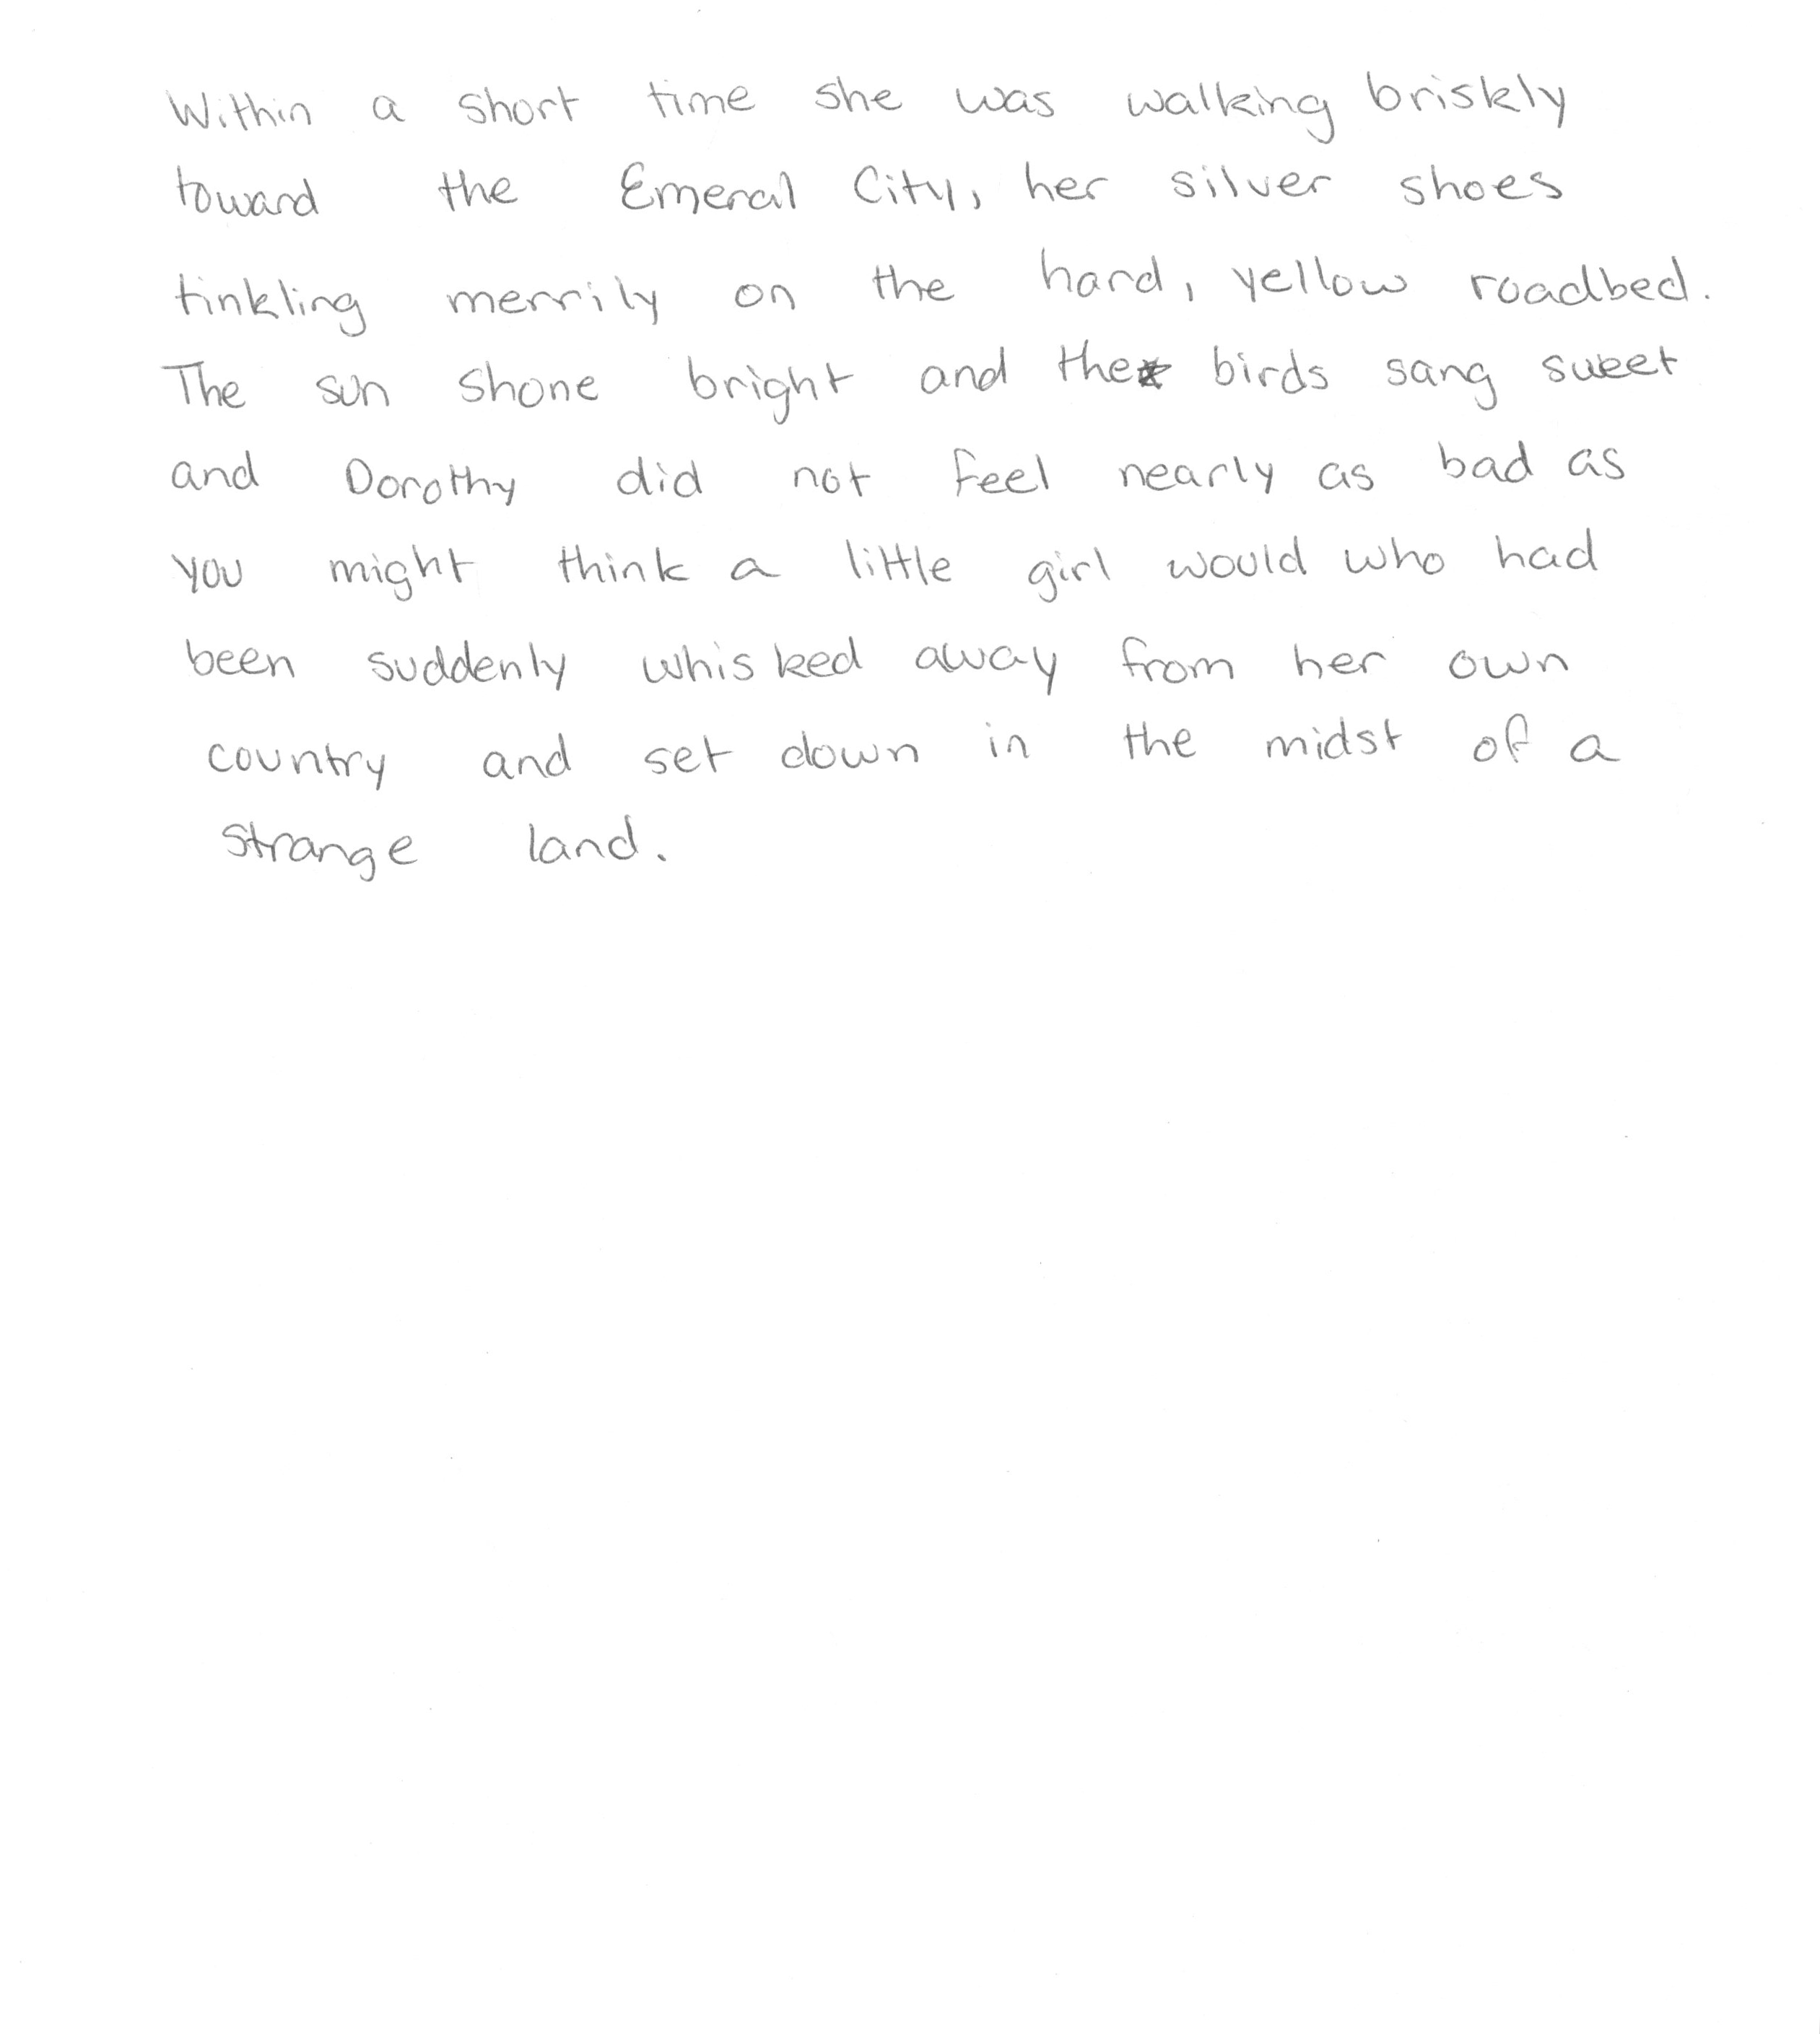 Within a short time she was walking briskly
toward the Emeral City, her silver shoes
tinkling merrily on the hard, yellow roadbed.
The sun shone bright and the birds sang sweet
and Dorothy did not feel nearly as bad as
you might think a little girl would who had
been suddenly whisked away from her own
country and set down in the midst of a
strange land.